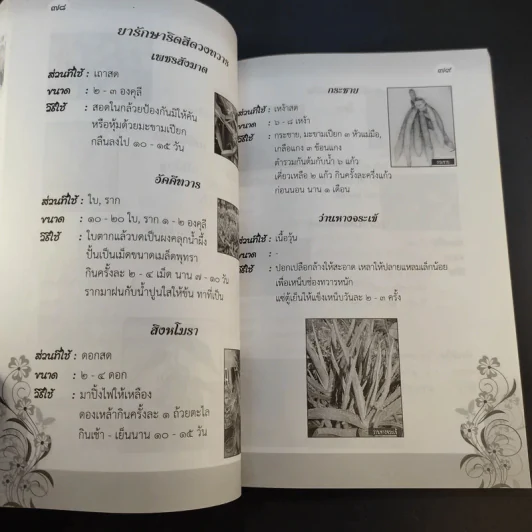 ๓๘
ยารักษาริดสีดวงทวาร
เพชรสังฆาต
ส่วนที่ใช้ : เถาสด
ขนาด : ๒ - ๓ องคุลี
วิธีใช้ : สอดในกล้วยป้องกันมิให้คัน
หรือหุ้มด้วยมะขามเปียก
กลืนลงไป ๑๐ - ๑๕ วัน
อัคคีทวาร
ส่วนที่ใช้ : ใบ, ราก
ขนาด : ๑๐ - ๒๐ ใบ, ราก ๑ - ๒ องคุลี
วิธีใช้ : ใบตากแล้วบดเป็นผงคลุกน้ำผึ้ง
ปั้นเป็นเม็ดขนาดเมล็ดพุทรา
กินครั้งละ ๒ - ๔ เม็ด นาน ๗ - ๑๐ วัน
รากมาฝนกับน้ำปูนใสให้ข้น ทาที่เป็น
สิงหโมรา
ส่วนที่ใช้ : ดอกสด
ขนาด : ๒ - ๔ ดอก
วิธีใช้ : มาปิ้งไฟให้เหลือง
ดองเหล้ากินครั้งละ ๑ ถ้วยตะไล
กินเช้า - เย็นนาน ๑๐ - ๑๕ วัน
๓๙
กระชาย
ส่วนที่ใช้ : เหง้าสด
ขนาด : ๖ - ๘ เหง้า
วิธีใช้ : กระชาย, มะขามเปียก ๓ หัวแม่มือ,
เกลือแกง ๓ ช้อนแกง
ตำรวมกันต้มกับน้ำ ๖ แก้ว
เคี่ยวเหลือ ๒ แก้ว กินครั้งละครึ่งแก้ว
ก่อนนอน นาน ๑ เดือน
กระชาย
ว่านหางจระเข้
ส่วนที่ใช้ : เนื้อวุ้น
ขนาด : -
วิธีใช้ : ปอกเปลือกล้างให้สะอาด เหลาให้ปลายแหลมเล็กน้อย
เพื่อเหน็บช่องทวารหนัก
แช่ตู้เย็นให้แข็งเหน็บวันละ ๒ - ๓ ครั้ง
ว่านหางจระเข้